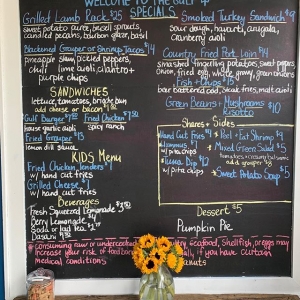 WELCOME TO THE GULF
SPECIALS
Grilled Lamb Rack $25
sweet potato puree, snicil sprouts,
candied pecans, bourbon glaze, basil
Blackened Grouper or Shrimp Tacos $14
pineapple slaw, pickled peppers,
chili lime aioli, cilantro +
purple chips
SANDWICHES
lettuce, tomatoes, brioche bun
add cheese or bacon
Gulf Burger Fried Chicken
house garlic aioli spicy ranch
Fried Grouper
lemon dill sauce
KIDS Menu
Fried Chicken Tenders
w/ hand cut fries
Grilled Cheese
w/ hand cut fries
Beverages
Fresh Squeezed Lemonade
Berry Lemonade
Soda or Iced Tea
Dasani
Smoked Turkey Sandwich
sour dough, havarti, arugula,
cranberry aioli
Country Fried Pork Loin $14
smashed fingerling potatoes, sweet peppers
onion, fried egg, whole gravy, green onions
Fish + Chips $15
beer battered cod, steak fries, malt aioli
Green Beans + Mushrooms $10
Risotto
Shares + Sides
Hand Cut Fries
Hummus
w/ pita chips
Tuna Dip $12
w/ pita chips
Pest + Shrimp $9
Mixed Green Salad $5
tomatoes + creamy balsamic
add grouper $8
Sweet Potato Soup $5
Dessert $5
Pumpkin Pie
*Consuming raw or undercooked poultry, seafood, shellfish, or eggs may
increase your risk of food borne illness, especially if you have certain
medical conditions